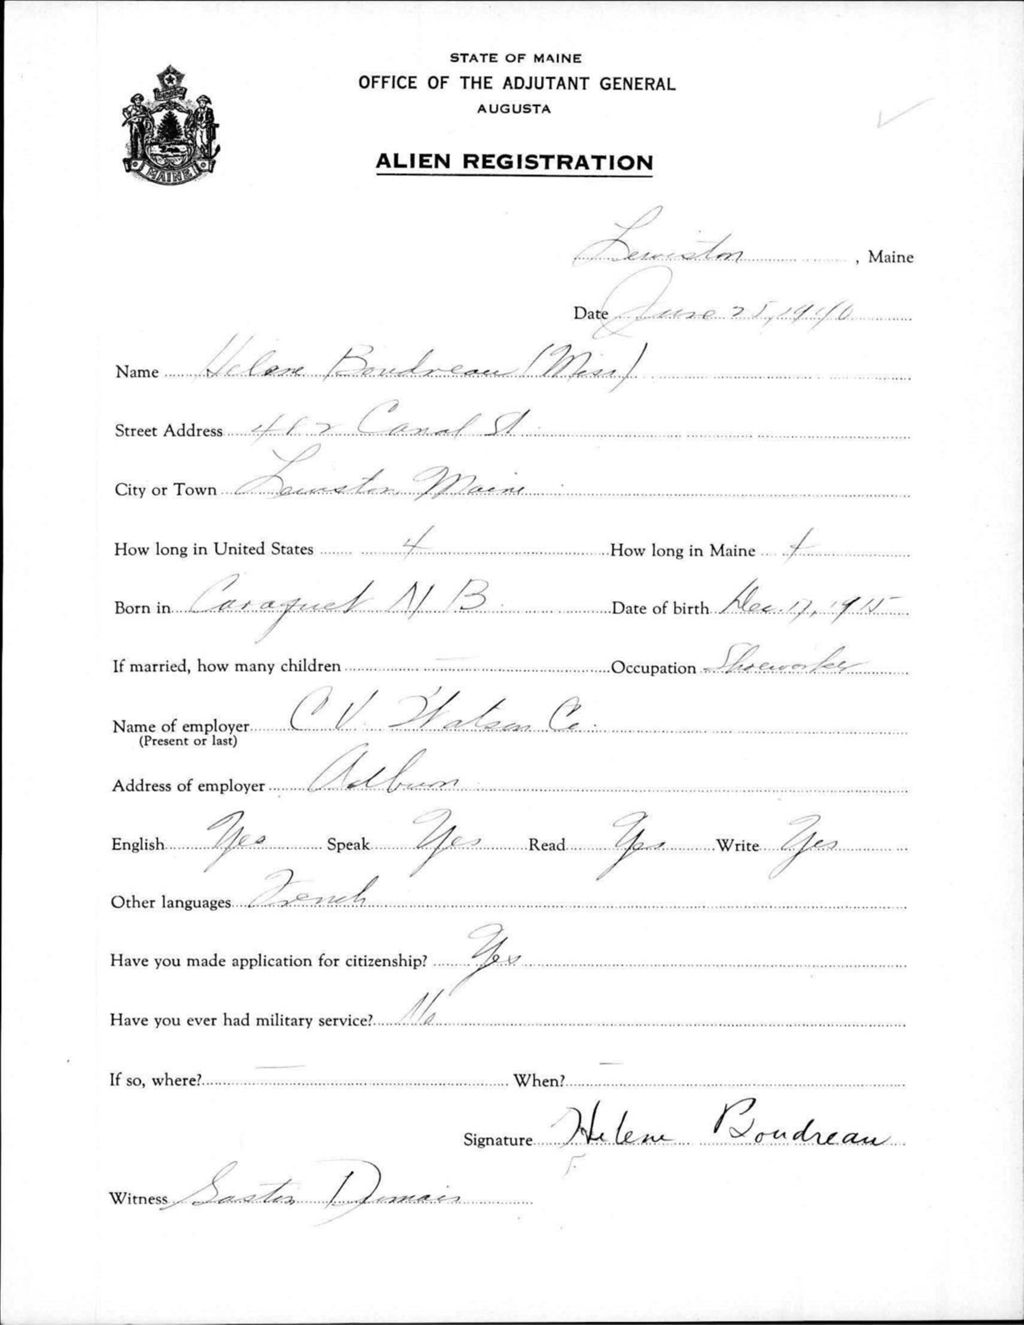 STATE OF MAINE
OFFICE OF THE ADJUTANT GENERAL
AUGUSTA
MAINE
ALIEN REGISTRATION
Lewiston, Maine
Date June 25, 1940
Name Helene Boudreau (Miss)
Street Address 482 Canal St
City or Town Lewiston, Maine
How long in United States 4 How long in Maine 4
Born in Caraquet N B Date of birth Dec. 17, 1915
If married, how many children — Occupation Shoeworker
Name of employer C V. Watson Co.
(Present or last)
Address of employer Auburn
English Yes Speak Yes Read Yes Write Yes
Other languages French
Have you made application for citizenship? Yes
Have you ever had military service? No
If so, where? — When? —
Signature Helene Boudreau
Witness Gaston Dumais